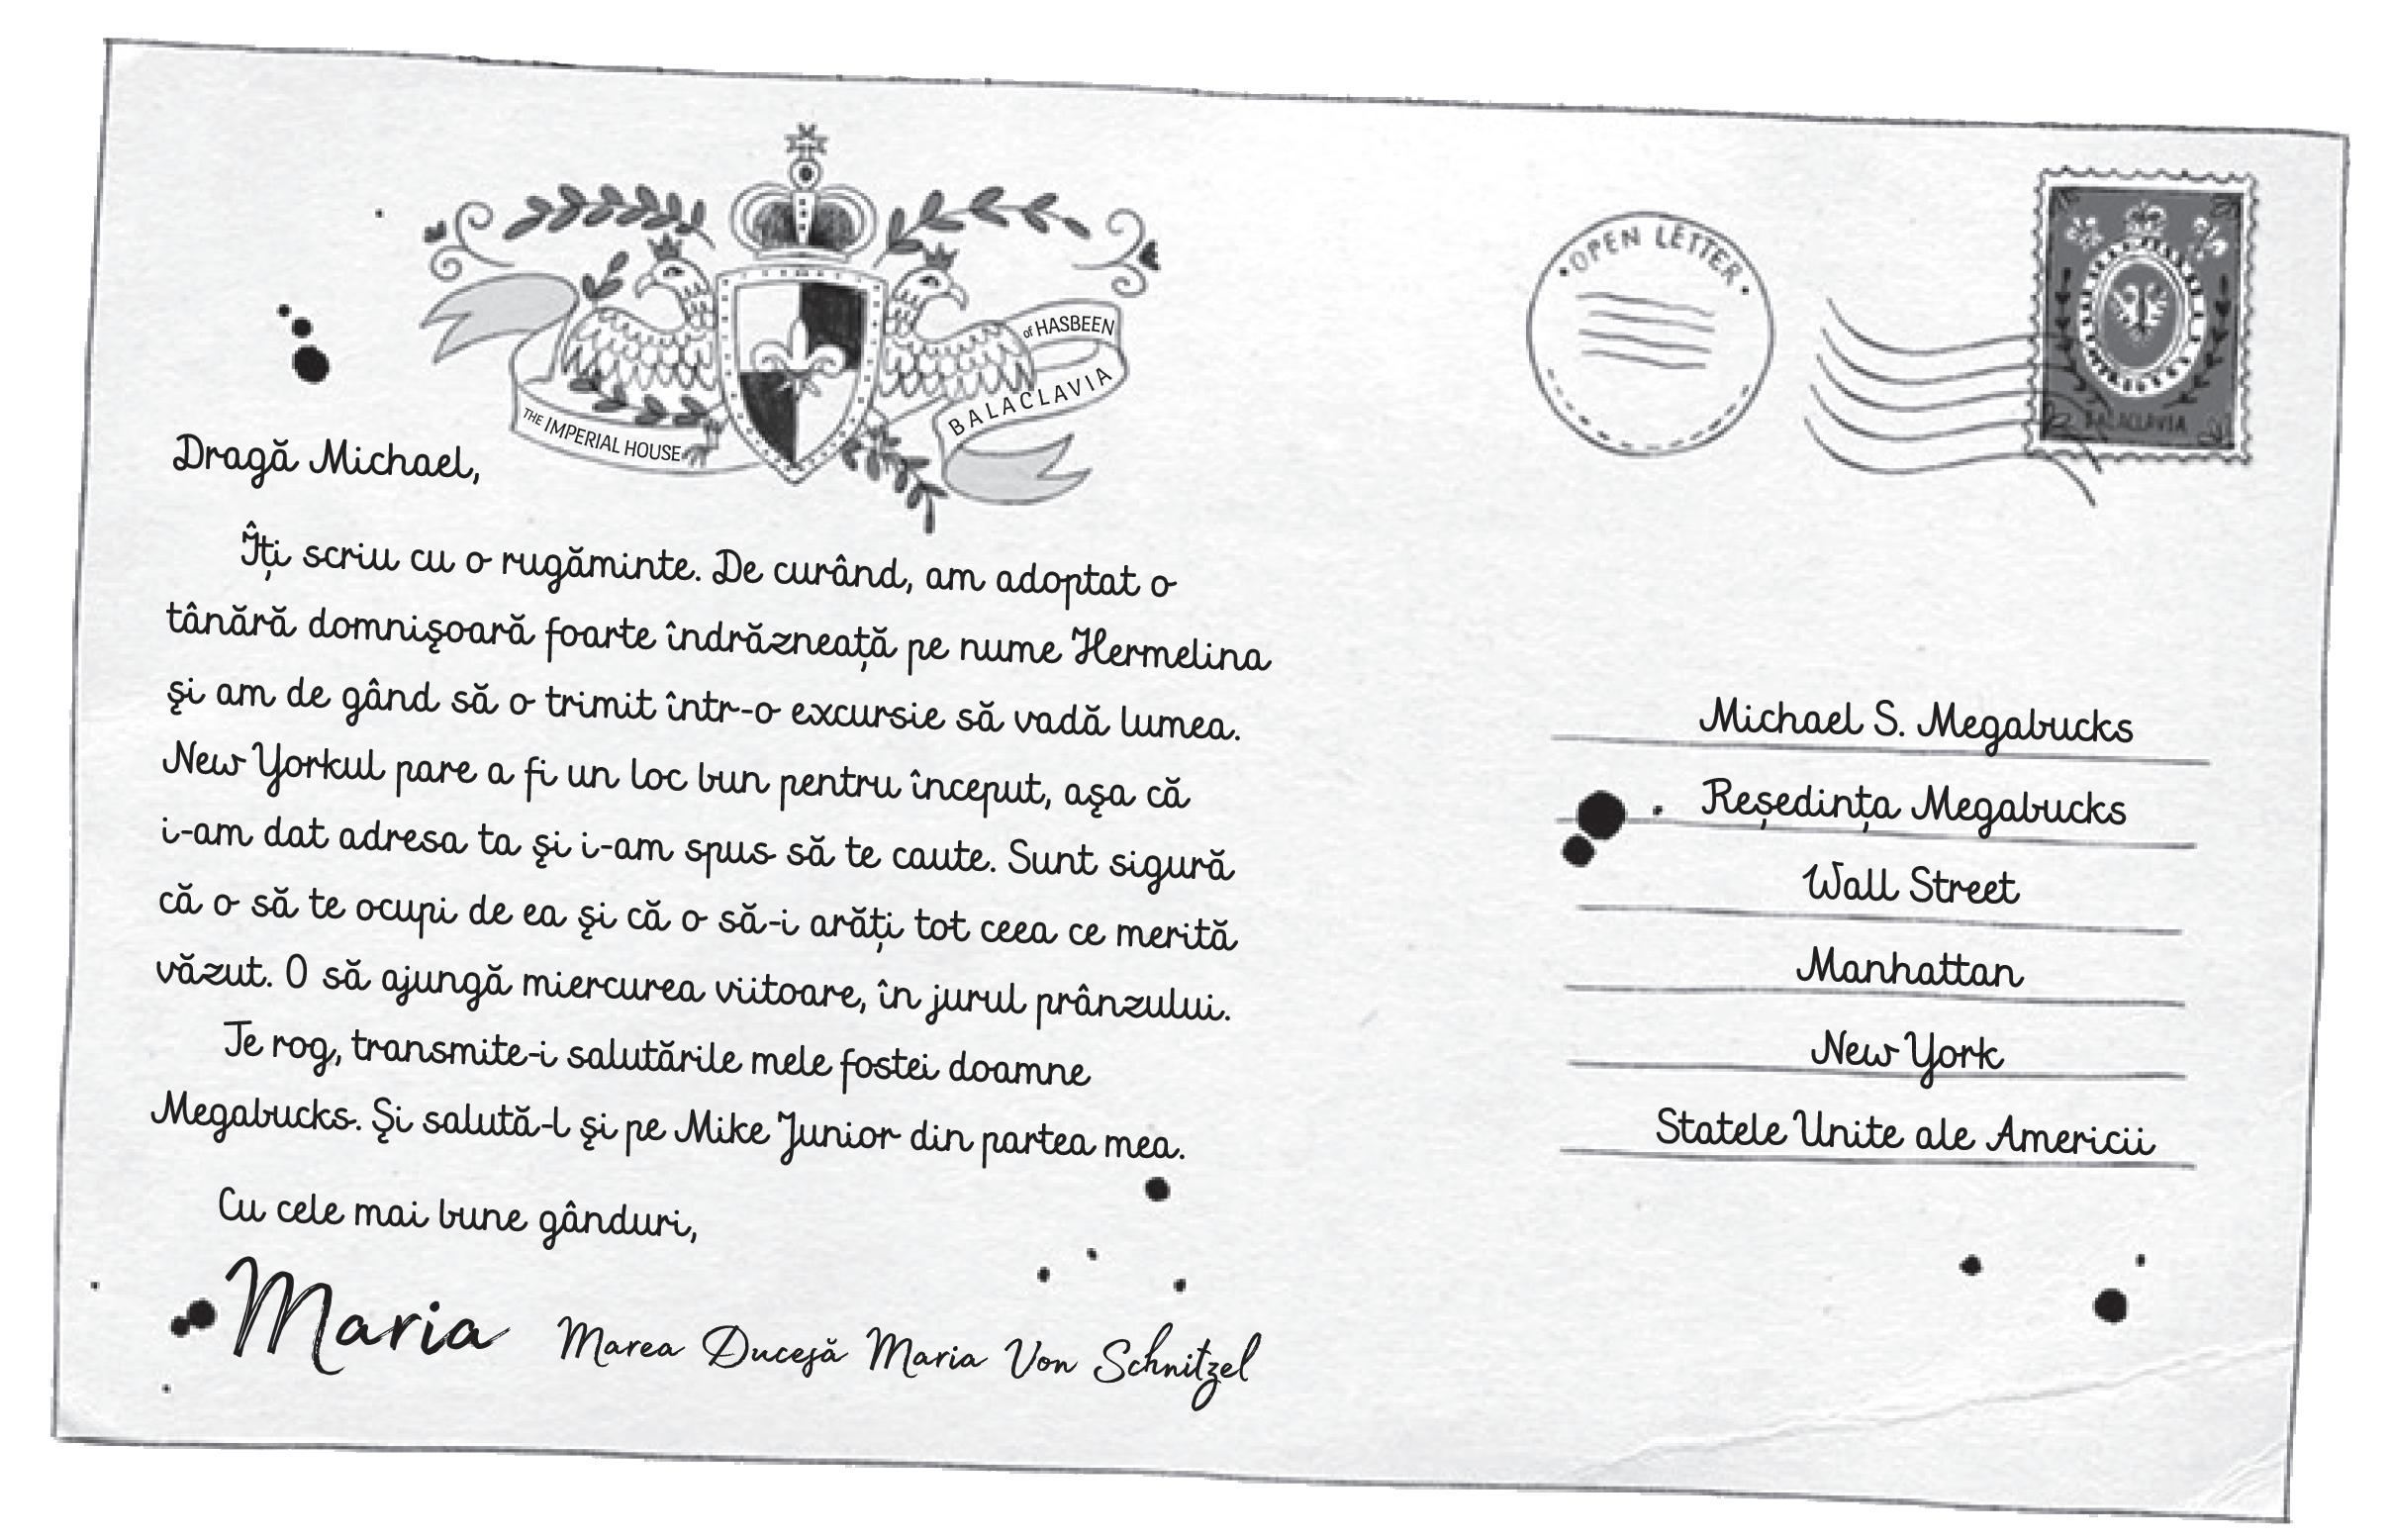 THE IMPERIAL HOUSE
of HASBEEN
BALACLAVIA
Dragă Michael,
Îți scriu cu o rugăminte. De curând, am adoptat o
tânără domnişoară foarte îndrăzneață pe nume Hermelina
şi am de gând să o trimit într-o excursie să vadă lumea.
New Yorkul pare a fi un loc bun pentru început, aşa că
i-am dat adresa ta şi i-am spus să te caute. Sunt sigură
că o să te ocupi de ea şi că o să-i arăți tot ceea ce merită
văzut. O să ajungă miercurea viitoare, în jurul prânzului.
Te rog, transmite-i salutările mele fostei doamne
Megabucks. Şi salută-l şi pe Mike Junior din partea mea.
Cu cele mai bune gânduri,
Maria
Marea Ducesă Maria Von Schnitzel
OPEN LETTER
BALACLAVIA
Michael S. Megabucks
Reședința Megabucks
Wall Street
Manhattan
New York
Statele Unite ale Americii